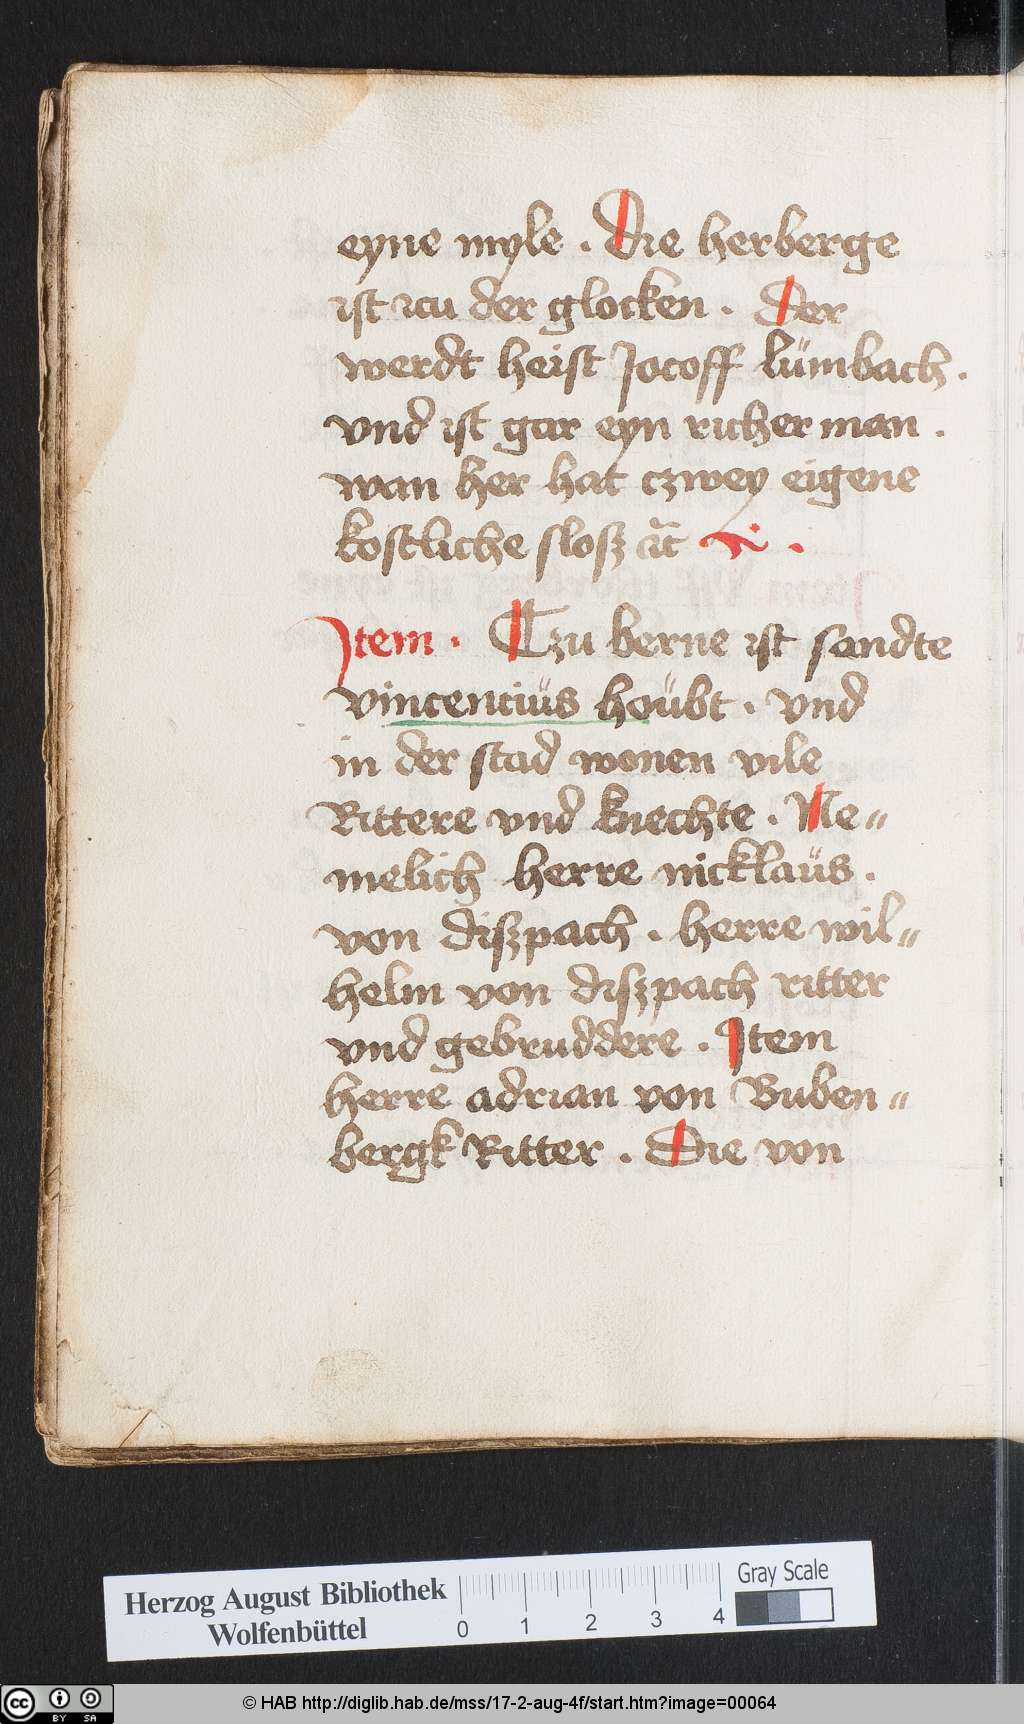 eyne myle . Die herberge
ist zcu der glocken . Der
werdt heist Jocoff lümbach .
vnd ist gar eyn richer man .
wan her hat czwey eigene
kostliche sloß
Item . Czu berne ist sandte
vincenciüs hoübt . vnd
in der stad wonen vile
Rittere vnd knechte . Ne〃
melich herre nicklaüs .
von diszpach . herre wil〃
helm von diszpach ritter
vnd gebruddere . Item
herre adrian von Buben〃
bergk Ritter . Die von
Herzog August Bibliothek
Wolfenbüttel
0 1 2 3 4
Gray Scale
cc BY SA
© HAB http://diglib.hab.de/mss/17-2-aug-4f/start.htm?image=00064